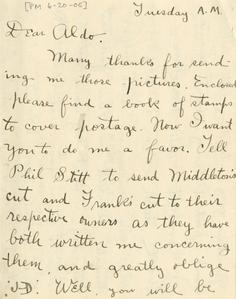 [PM 6-20-06]
Tuesday A.M.
Dear Aldo.
Many thanks for send-
ing me those pictures. Enclosed
please find a book of stamps
to cover postage. Now I want
you to do me a favor. Tell
Phil Stitt to send Middleton's
cut and Frank's cut to their
respective owners as they have
both written me concerning
them, and greatly oblige
Well, you will be